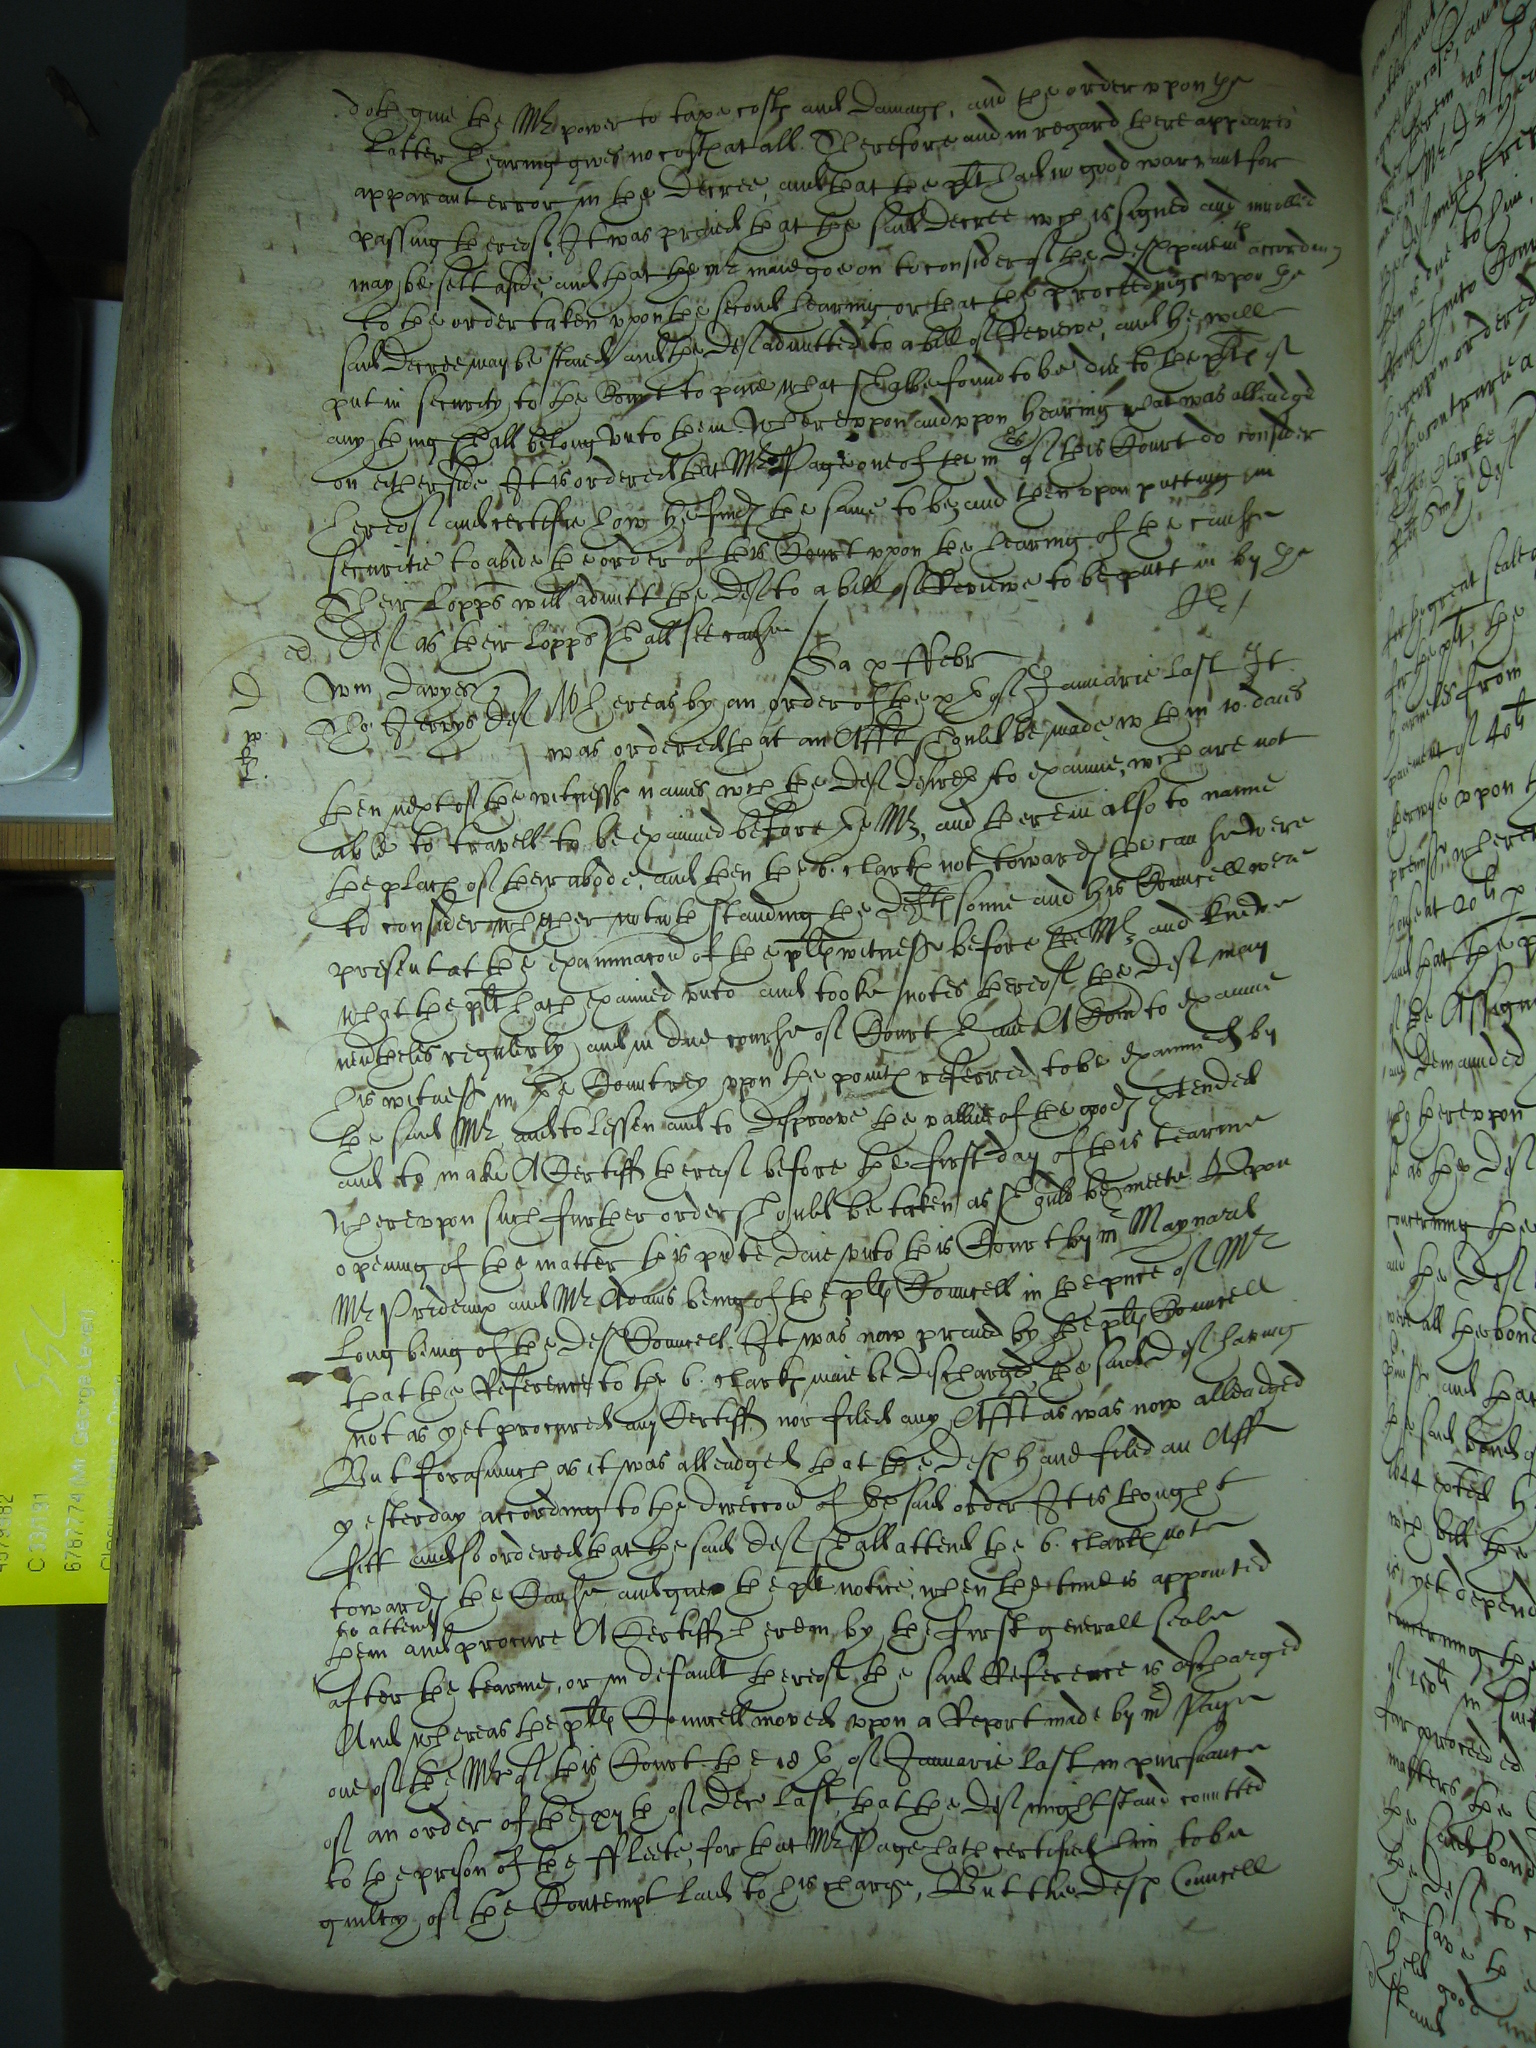 doth giue the Mr power to taxe costs and damages, and the order vpon the
latter hearing giues no costs at all. Therefore and in regard there appears
apparant error in the decree, and that the plt had no good warrant for
passing thereof. It was praied that the said decree wch is signed and inrolled
may be sett aside, and that the Mr maie goe on to consider of the defts paiemts according
to the order taken vpon the second hearing or that the proceedings vpon the
said decree may be staid and the def admitted to a bill of Reveiwe, and he will
put in security to the Court to paie what shalbe found to be due to the plts if
any thing shall belong vnto them. Wherevpon and vpon hearing what was alleadged
on either side It is ordered that Mr Page one of the mrs of this Court do consider
hereof and certifie how he finds the same to be, and then vpon putting in
securitie to abide the order of this Court vpon the hearing of the cause
Their Lopps will admitt the def to a bill of Reveiwe to be putt in by the
def as their Lopps shall see cause /
Sa x ffebr
Wm Davyes
Tho: Jerrys def Whereas by an order of the xth of Januarie last It
was ordered that an Afft should be made wthin 10. daies
then next of the witnesses names wch the def desireth to examine, wch are not
able to travell to be examined before the Mr, and therein also to name
the places of their abode, and then the 6. clarks not towards the cause were
to consider whether notwth standing the defts sonne and his Councell were
present at the examinacon of the plts witnesses before the Mr and knewe
what the plt hath examined vnto and tooke notes thereof, the def may
neutheles regularly and in due course of Court haue A Com to examine
his witnesses in the Countrey vpon the points referred to be examined by
the said Mr and to lessen and to disproove the vallue of the goods extended
and to make A Certiff thereof before the first day of this tearme
Wherevpon such further order should be taken as should be meete. Vpon
opening of the matter this pnte daie vnto this Court by mr Maynard
Mr Prideaux and Mr Adams being of the plts Councell in the pnce of Mr
Long being of the def Councell. It was now praied by the plts Councell
that the Reference to the 6. clarks maie be discharged, the said def having
not as yet procured any Certiff nor filed any Afft as was now alleadged
But forasmuch as it was alleadged that the def had filed an Aff
yesterday according to the direccon of the said order It is thought
fitt and so ordered that the said def shall attend the 6. clarks not
towards the Cause, and giue the plt notice, when the time is appointed
to attend
them and procure A Certiff hereon by the first generall seale
after the tearme, or in default thereof the said Reference is discharged
And whereas the plts Councell moved vpon a Report made by mr Page
one of the Mrs of this Court the 18th of Januarie last in pursuance
of an order of the xijth of Dec last, that the def might stand comitted
to the prison of the ffleete, for that Mr Page hath certified him to be
guilty of the Contempt laid to his charge, But the defs Councell